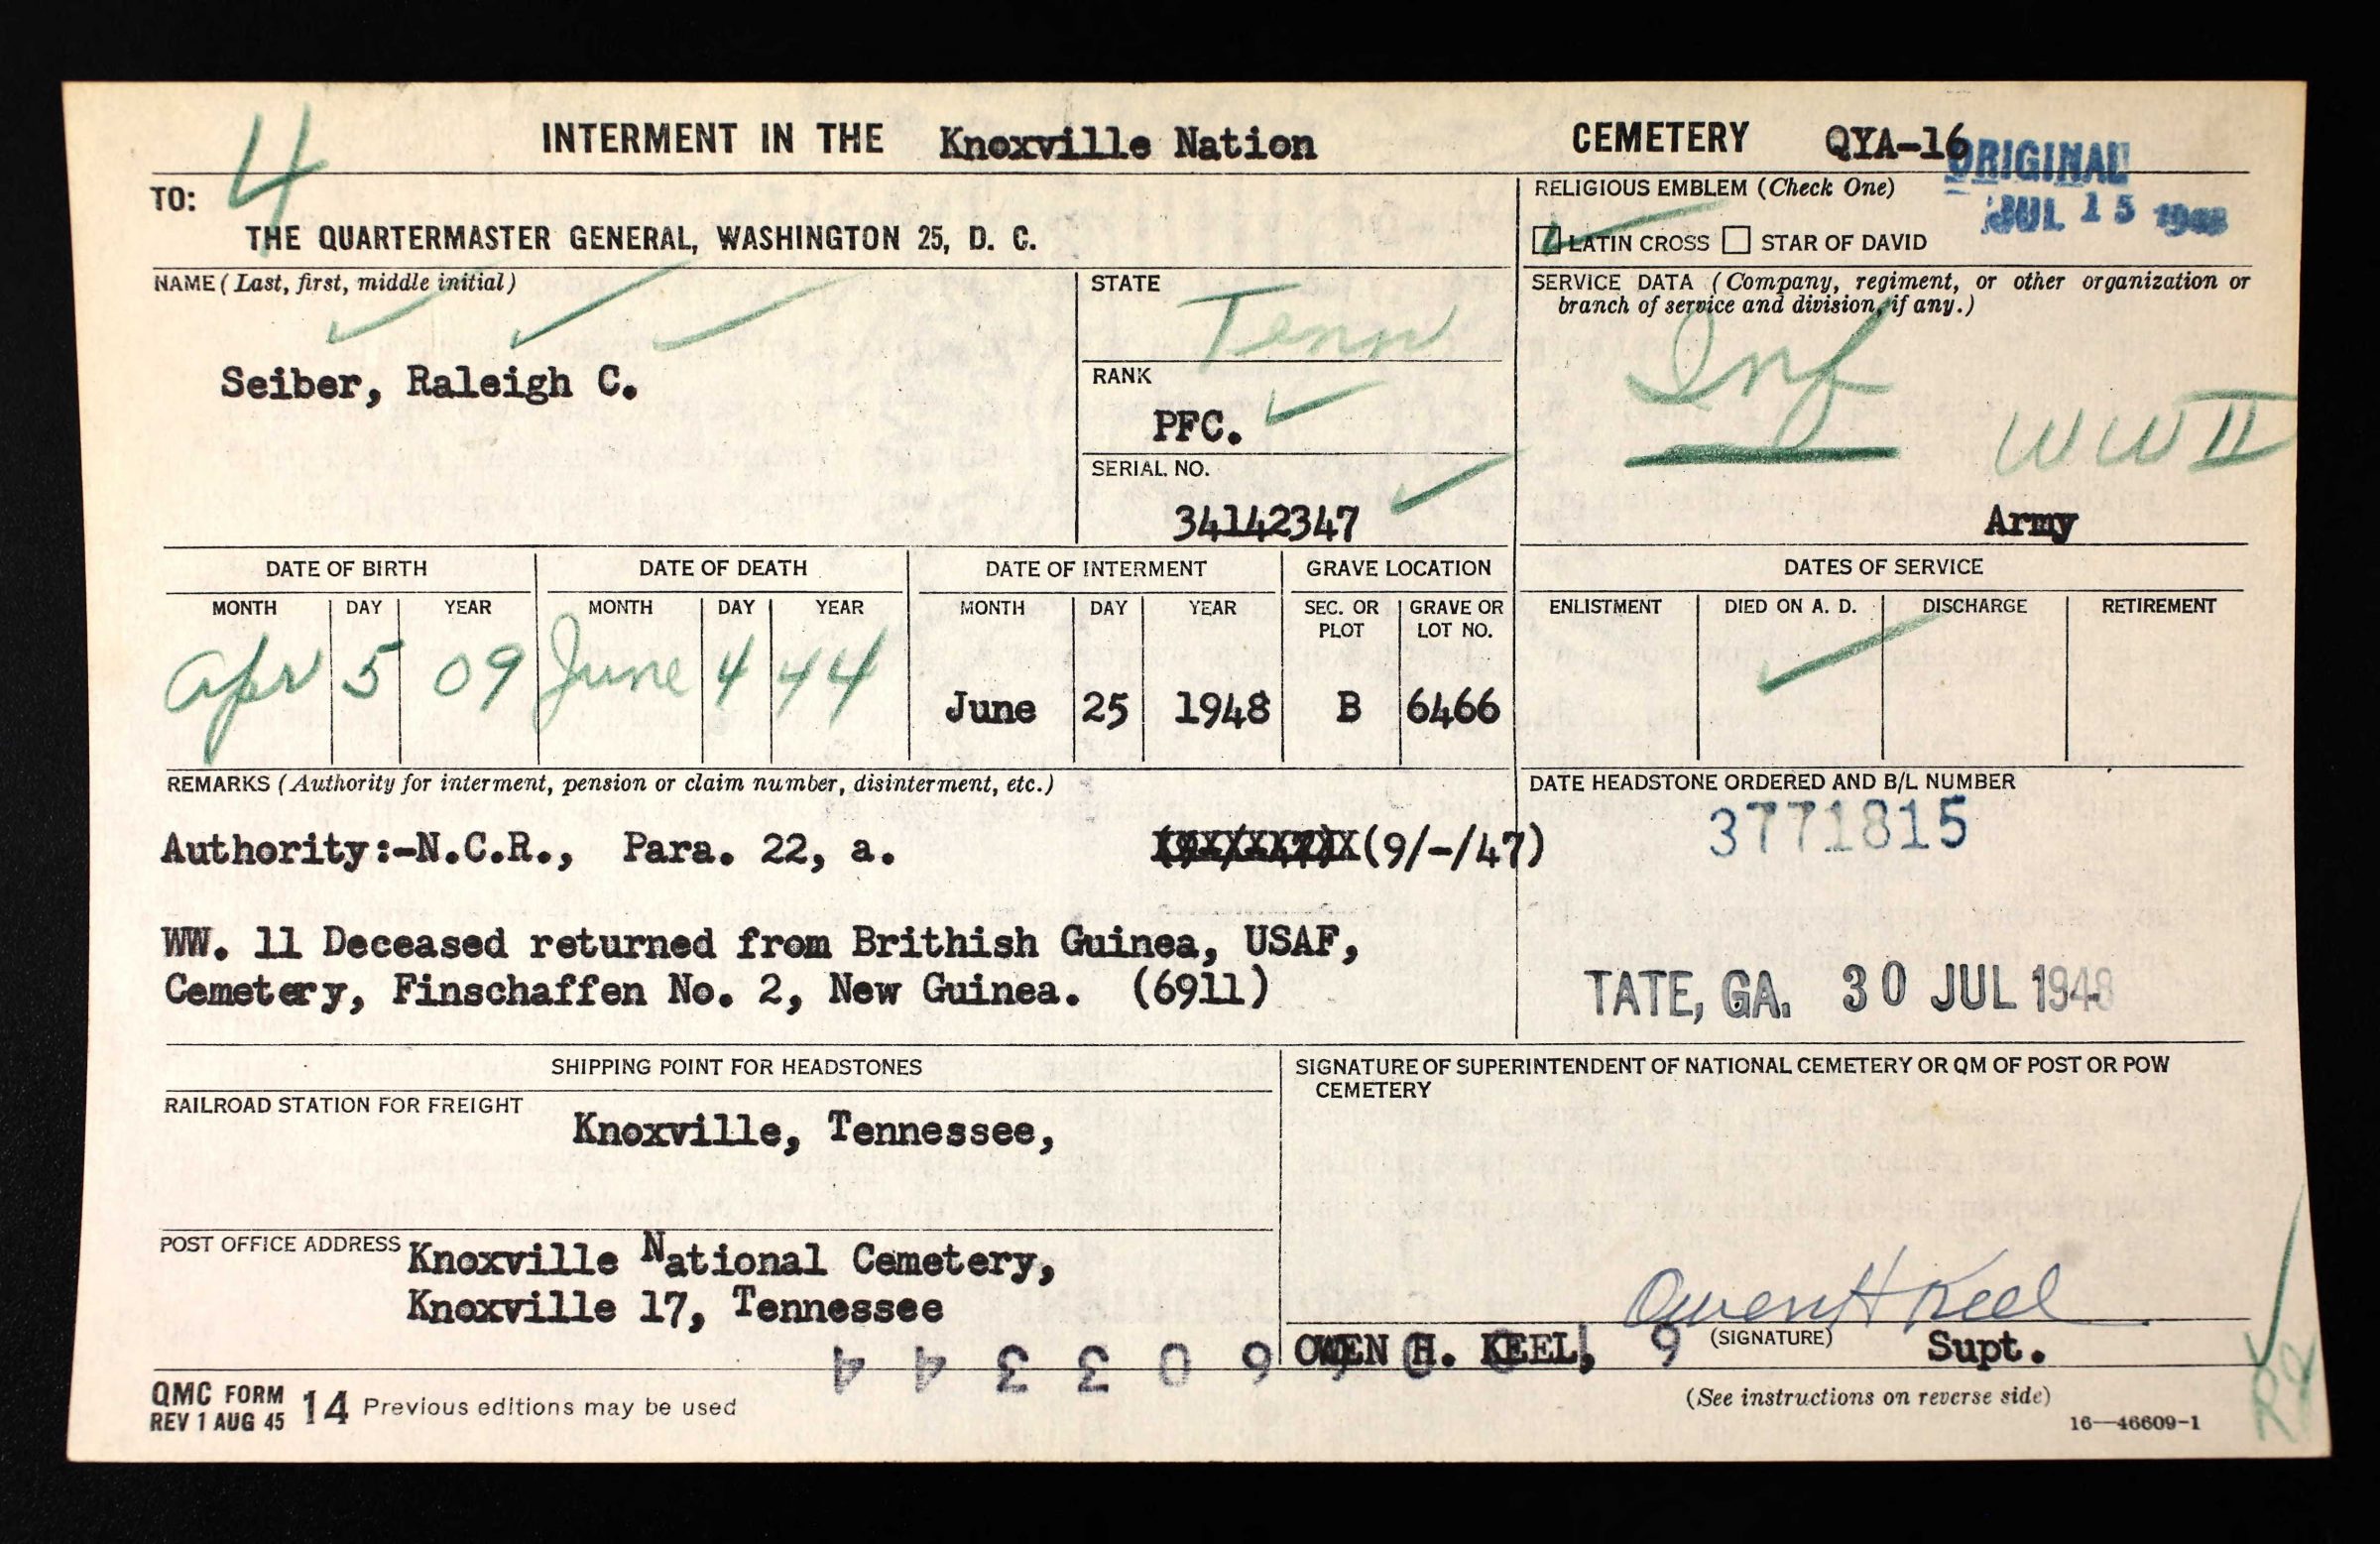 INTERMENT IN THE Knoxville Nation CEMETERY QYA-16
ORIGINAL
JUL 15 1948
4
TO:
THE QUARTERMASTER GENERAL, WASHINGTON 25, D. C.
RELIGIOUS EMBLEM (Check One)
LATIN CROSS STAR OF DAVID
NAME (Last, first, middle initial)
Seiber, Raleigh C.
STATE
Tenn
RANK
PFC.
SERIAL NO.
34142347
SERVICE DATA (Company, regiment, or other organization or
branch of service and division, if any.)
Inf
WW II
Army
DATE OF BIRTH DATE OF DEATH DATE OF INTERMENT GRAVE LOCATION DATES OF SERVICE
MONTH DAY YEAR MONTH DAY YEAR MONTH DAY YEAR SEC. OR PLOT GRAVE OR LOT NO. ENLISTMENT DIED ON A. D. DISCHARGE RETIREMENT
Apr 5 09 June 4 44 June 25 1948 B 6466
REMARKS (Authority for interment, pension or claim number, disinterment, etc.)
Authority:-N.C.R., Para. 22, a. (9/-/47)
WW. 11 Deceased returned from Brithish Guinea, USAF,
Cemetery, Finschaffen No. 2, New Guinea. (6911)
DATE HEADSTONE ORDERED AND B/L NUMBER
3771815
TATE, GA. 30 JUL 1948
SHIPPING POINT FOR HEADSTONES
RAILROAD STATION FOR FREIGHT
Knoxville, Tennessee,
POST OFFICE ADDRESS Knoxville National Cemetery,
Knoxville 17, Tennessee
SIGNATURE OF SUPERINTENDENT OF NATIONAL CEMETERY OR QM OF POST OR POW
CEMETERY
Owen H Keel
OWEN H. KEEL, (SIGNATURE) Supt.
QMC FORM 14 Previous editions may be used
REV 1 AUG 45
(See instructions on reverse side)
16—46609-1